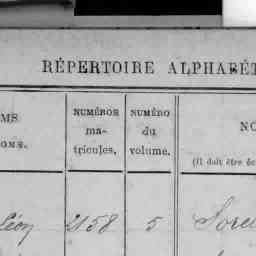 RÉPERTOIRE ALPHABÉT
MS
OMS.
NUMÉROS
ma-
tricules.
NUMÉRO
du
volume.
NO
(Il doit être éc
Léon 2158 5 Sorel